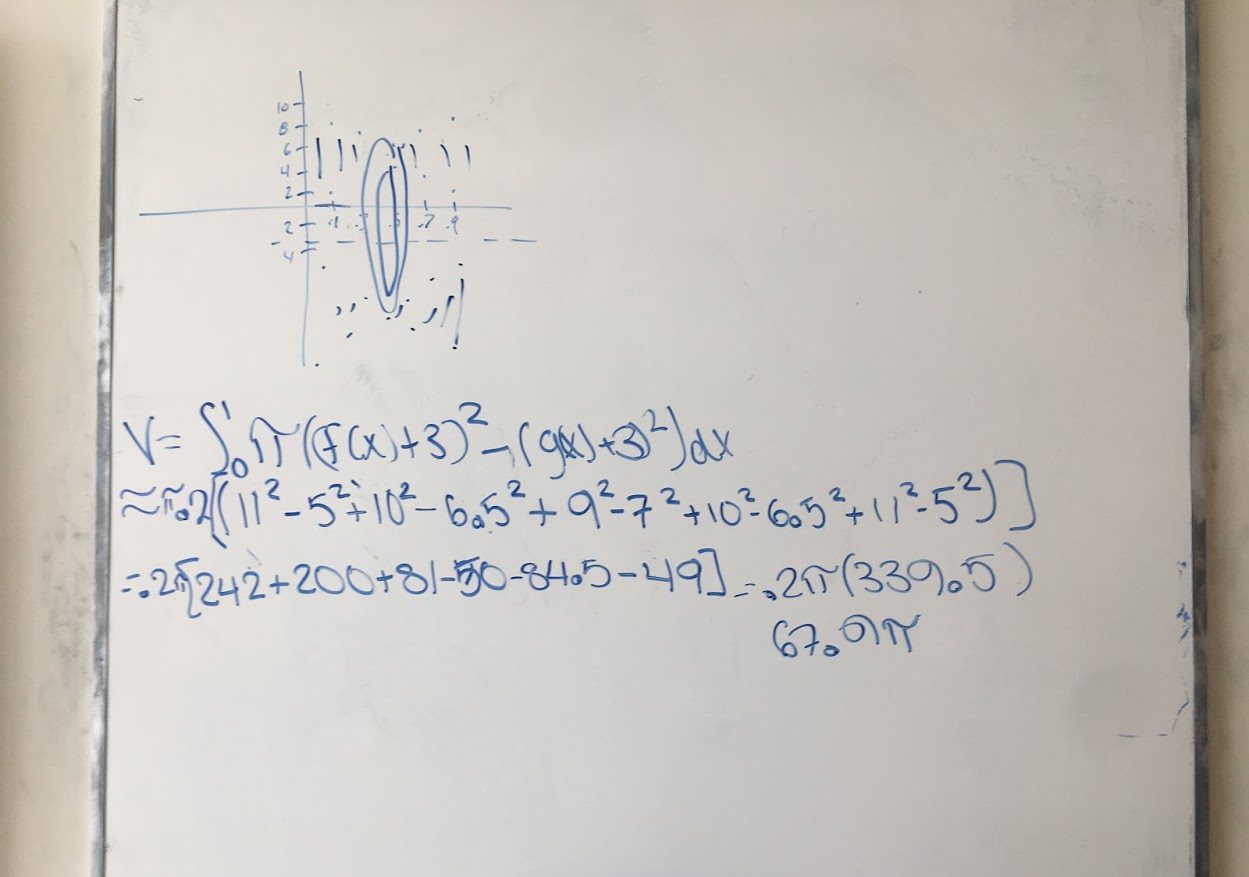 10
8
6
4
2
.1 .7 .9
2
4
V= ∫₀¹ π((f(x)+3)² -(g(x)+3)²)dx
≈π.2[(11²-5²+10²-6.5²+9²-7²+10²-6.5²+11²-5²)]
=.2π[242+200+81-50-84.5-49] =.2π(339.5)
67.9π